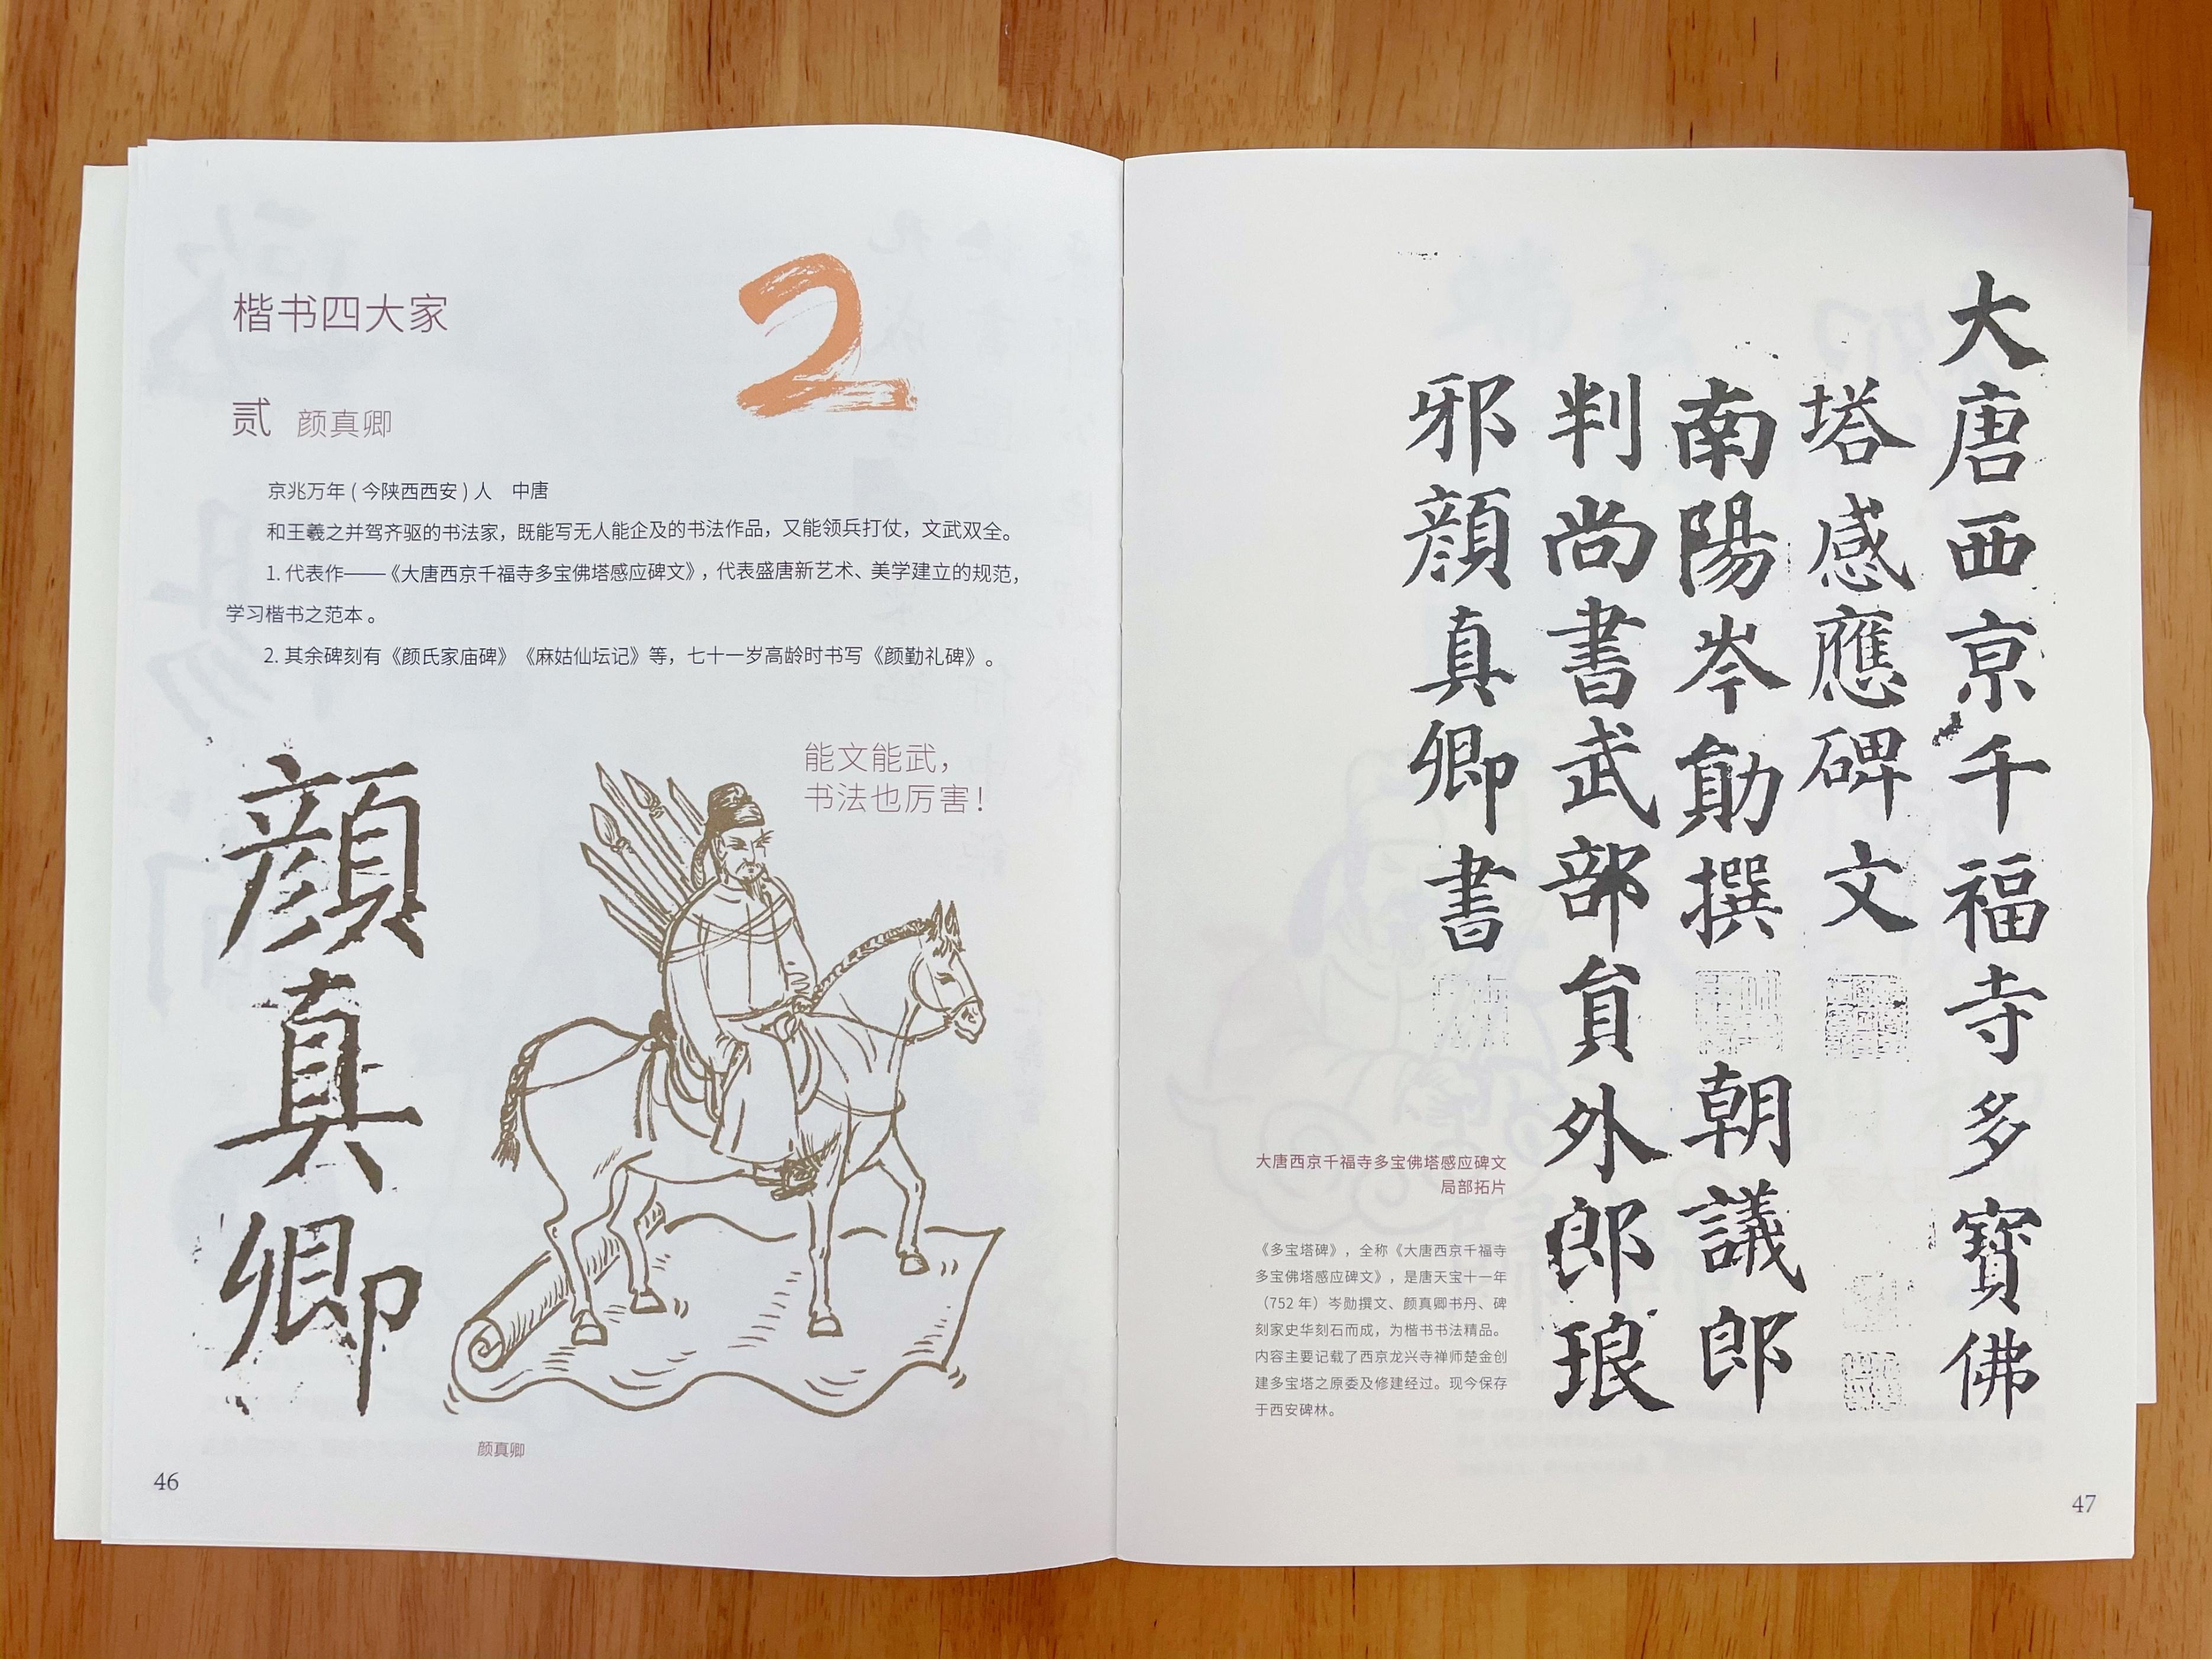 楷书四大家
2
贰 颜真卿
京兆万年(今陕西西安)人 中唐
和王羲之并驾齐驱的书法家，既能写无人能企及的书法作品，又能领兵打仗，文武双全。
1. 代表作——《大唐西京千福寺多宝佛塔感应碑文》，代表盛唐新艺术、美学建立的规范，
学习楷书之范本。
2. 其余碑刻有《颜氏家庙碑》《麻姑仙坛记》等，七十一岁高龄时书写《颜勤礼碑》。
能文能武，
书法也厉害！
顔真卿
颜真卿
46
大唐西京千福寺多寶佛
塔感應碑文
南陽岑勛撰 朝議郎
判尚書武部員外郎琅
邪顔真卿書
大唐西京千福寺多宝佛塔感应碑文
局部拓片
《多宝塔碑》，全称《大唐西京千福寺
多宝佛塔感应碑文》，是唐天宝十一年
（752 年）岑勋撰文、颜真卿书丹、碑
刻家史华刻石而成，为楷书书法精品。
内容主要记载了西京龙兴寺禅师楚金创
建多宝塔之原委及修建经过。现今保存
于西安碑林。
47